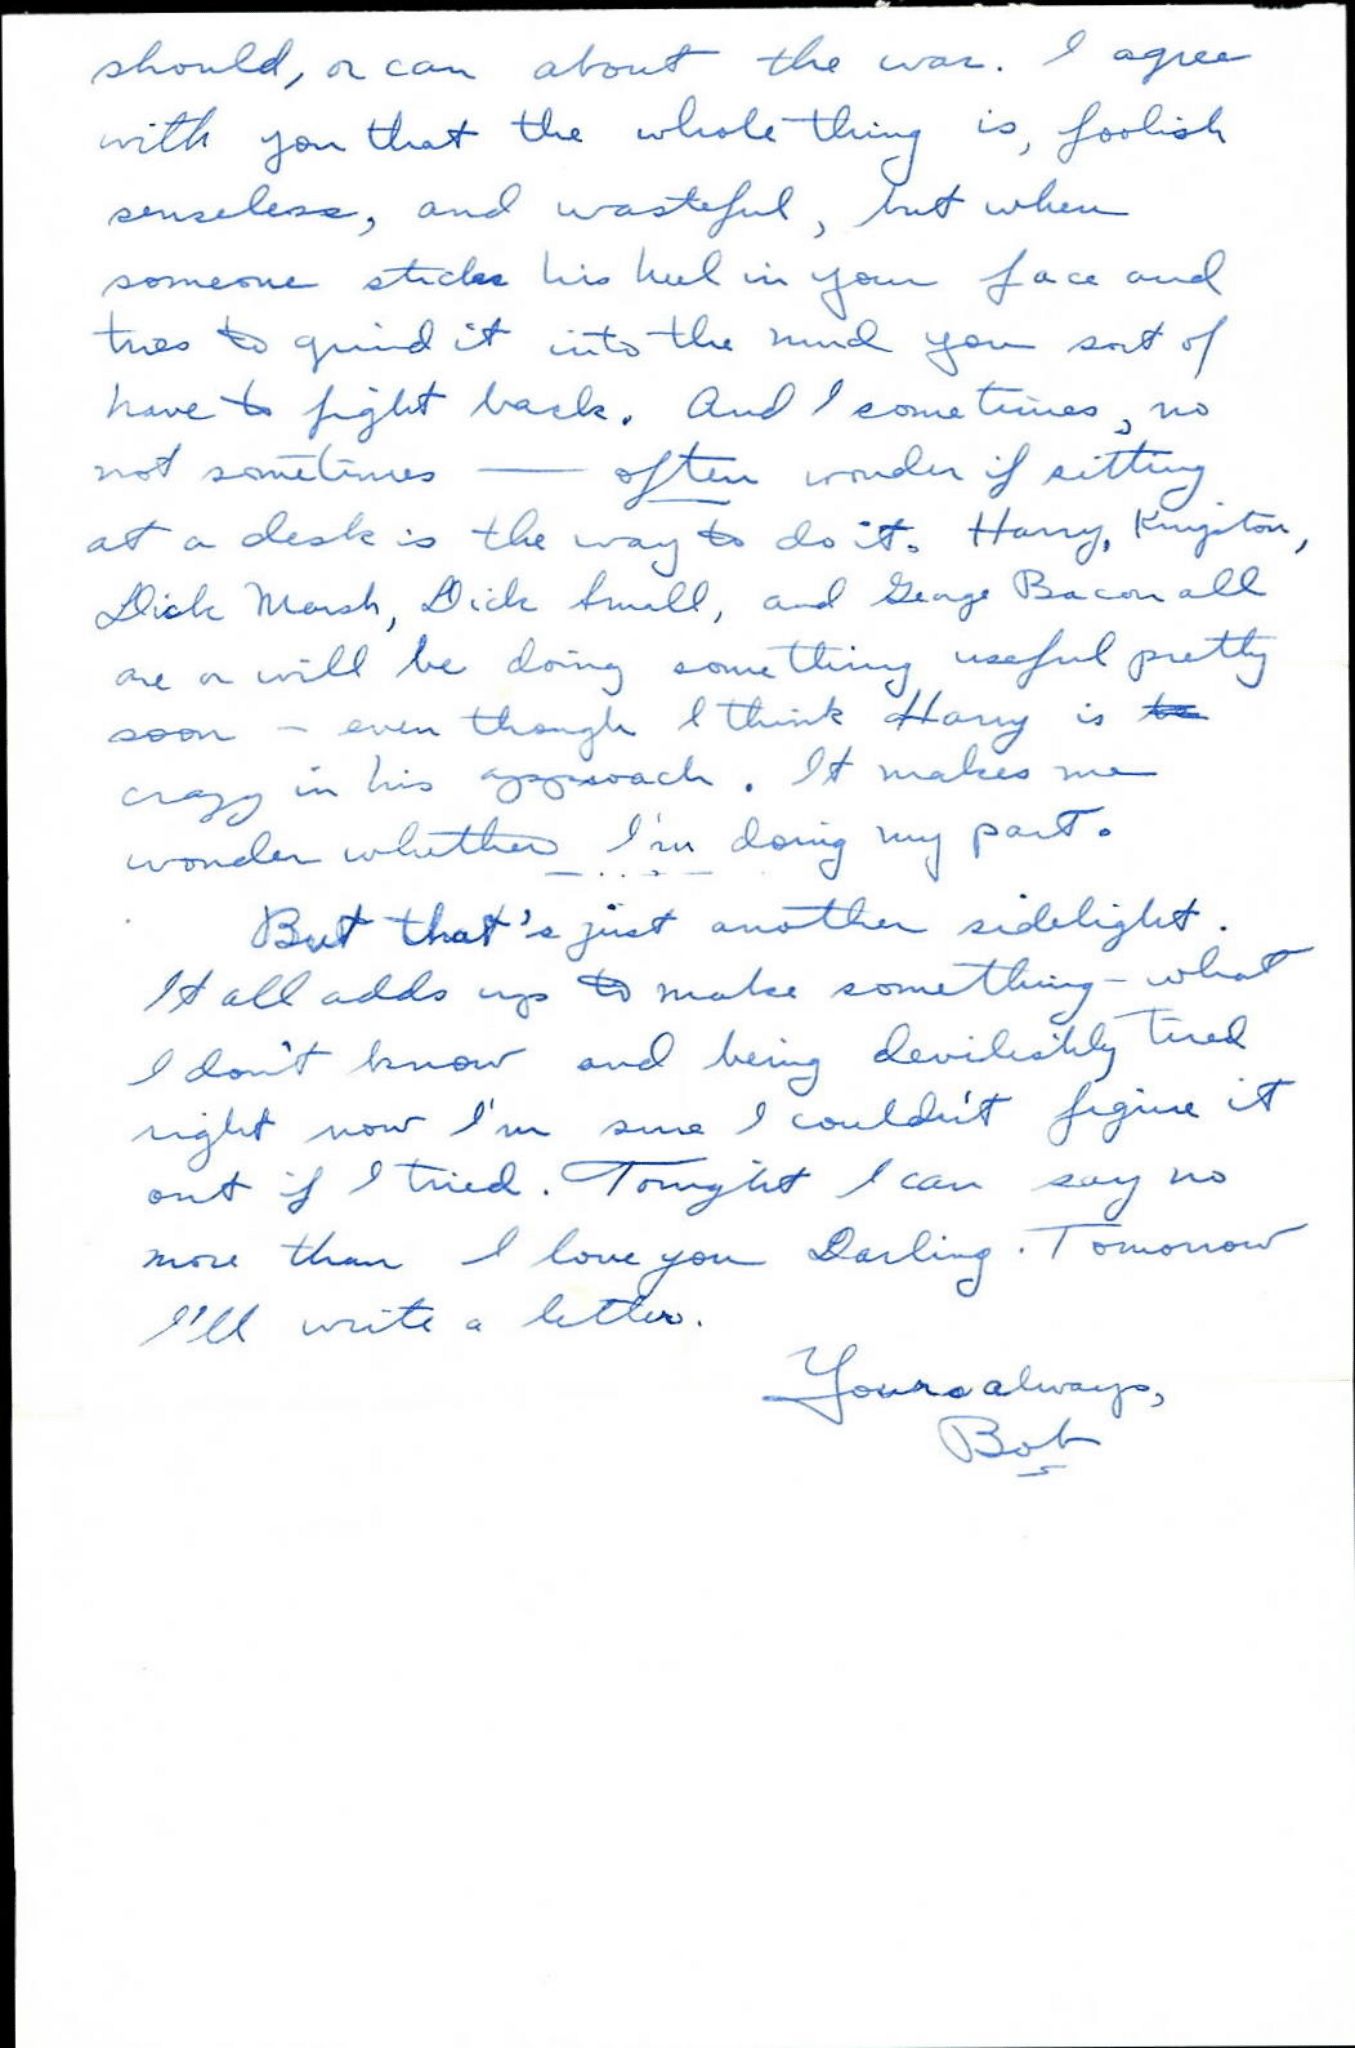 should, or can about the war. I agree
with you that the whole thing is, foolish
senseless, and wasteful, but when
someone sticks his heel in your face and
tries to grind it into the mud you sort of
have to fight back. And I sometimes, no
not sometimes — often wonder if sitting
at a desk is the way to do it. Harry, Kingston,
Dick Marsh, Dick Small, and George Bacon all
are or will be doing something useful pretty
soon – even though I think Harry is
crazy in his approach. It makes me
wonder whether I'm doing my part.
But that's just another sidelight.
It all adds up to make something – what
I don't know and being devilishly tired
right now I'm sure I couldn't figure it
out if I tried. Tonight I can say no
more than I love you Darling. Tomorrow
I'll write a letter.
Yours always,
Bob